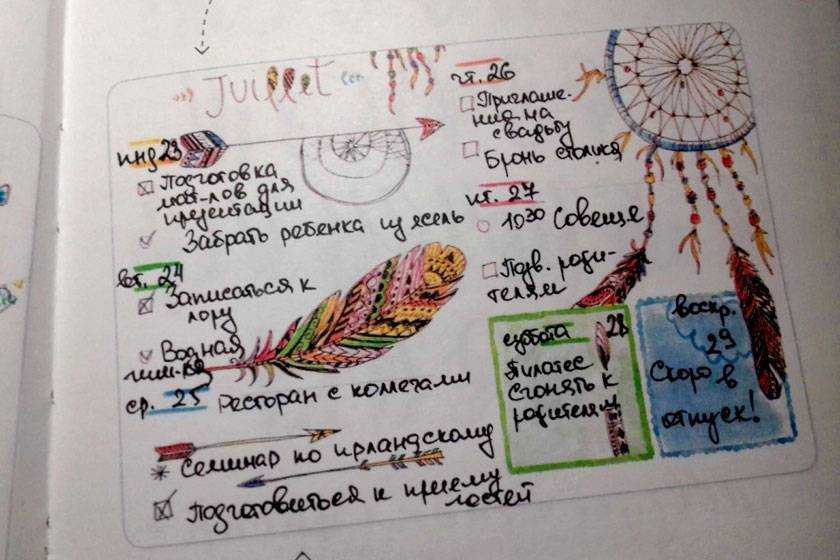 Juillet
пнд 23
Подготовка
мат-лов для
презентации
Забрать ребёнка из ясель
вт. 24
Записаться к
лору
Водная
гимн-ка
ср. 25
Ресторан с коллегами
Семинар по ирландскому
Подготовиться к приему
гостей
чт. 26
Приглаше-
ния на
свадьбу
Бронь столика
пт. 27
10 30 Совеща
Подв. роди-
телям
суббота 28
Пилатес
Сгонять к
родителям
воскр.
29
Скоро в
отпуск!